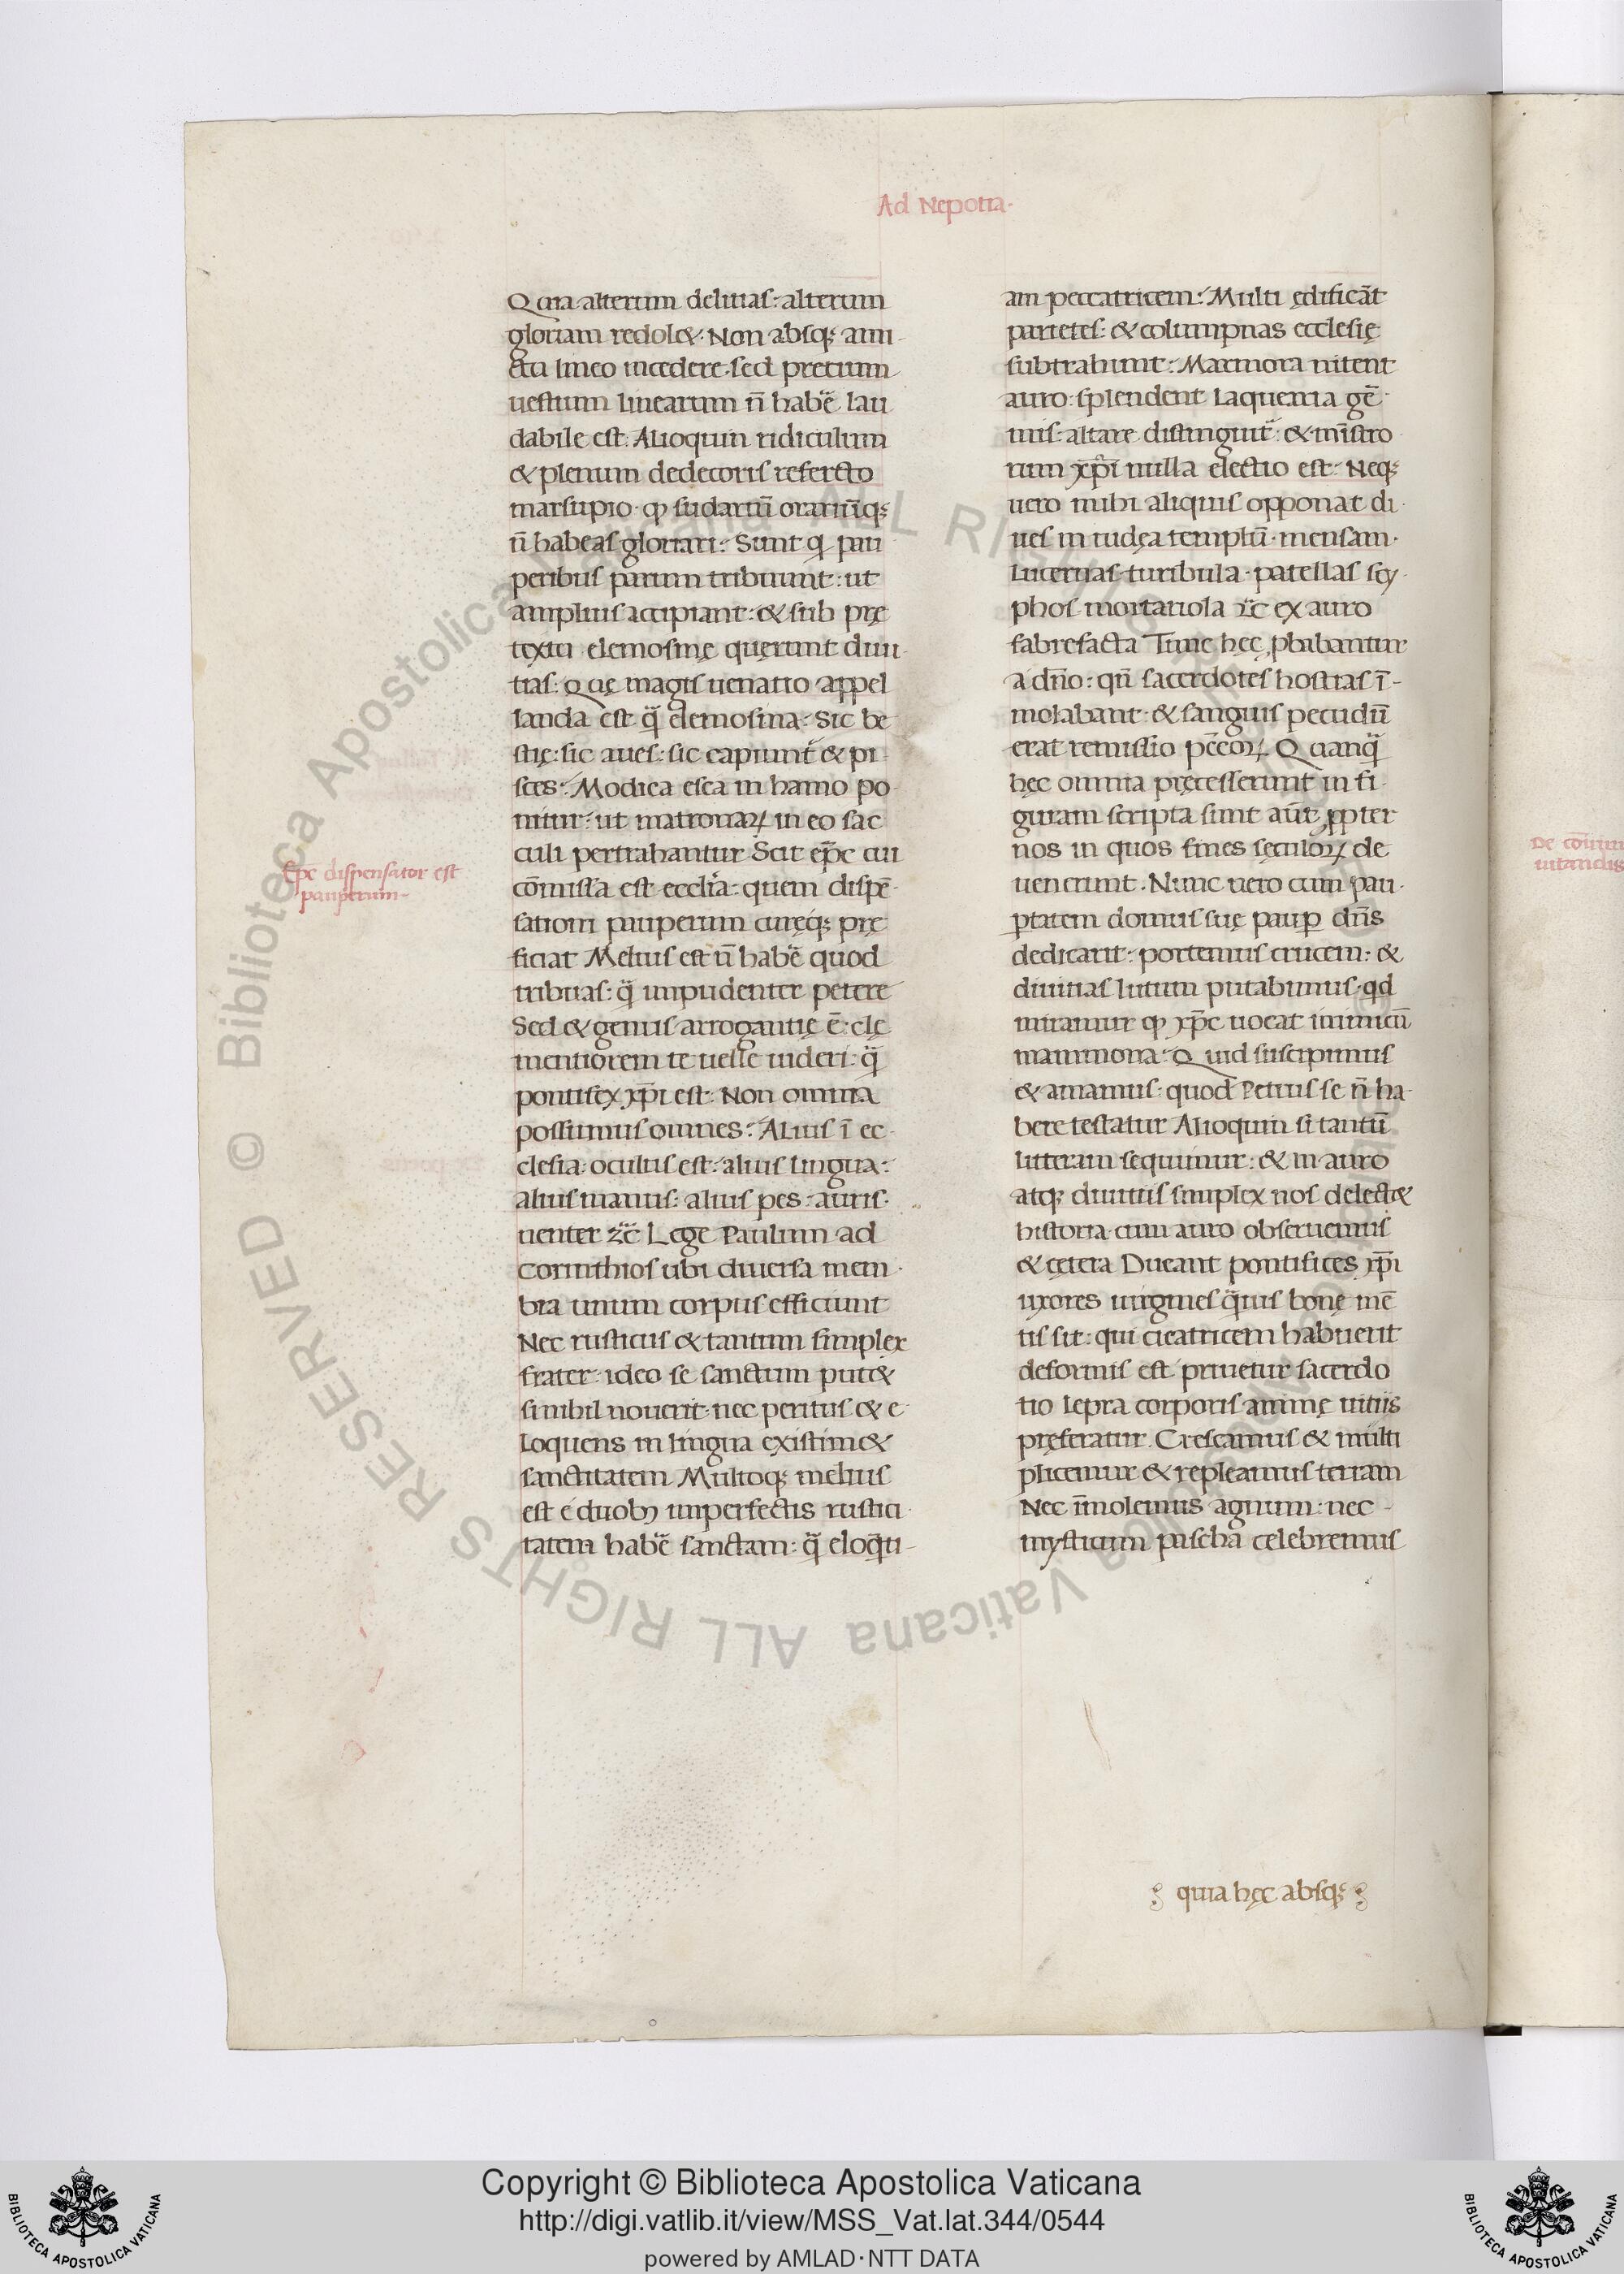 Ad Nepotia·
Quia alterum delitias: alterum
gloriam redolet. Non absq; ami-
ctu lineo incedere sed pretium
uestium linearum n̄ habē lau
dabile est. Alioquin ridiculum
& plenum dedecoris referto
marsupio ꝙ sudariū orariūq;
n̄ habeas gloriari. Sunt q̇ pau
peribus parum tribuunt: ut
amplius accipiant: & sub prę
textu elemosinę querunt diui
tias: Quę magis uenatio appel
landa est q̄ elemosina. Sic be
stię: sic aues: sic capiunt̄ & pi
sces. Modica esca in hamo po
nitur: ut matronaꝝ in eo sac
culi pertrahantur Scit ep̄c cui
cōmissa est eccl̄ia: quem dispē-
sationi pauperum curęq; prę
ficiat Melius est n̄ habē quod
tribuas: q̄ impudenter petere
Sed & genus arrogantię ē: cle
mentiorem te uelle uideri: q̄
pontifex xp̄i est. Non omnia
possumus omnes. Alius ī ec-
clesia oculus est: alius lingua:
alius manus: alius pes: auris·
uenter &c̄ Lege Paulum ad
Corinthios ubi diuersa mem-
bra unum corpus efficiunt
Nec rusticus & tantum simplex
frater ideo se sanctum putet
si nihil nouerit nec peritus & e
loquens in lingua existimet
sanctitatem Multoq; melius
est e duobꝫ imperfectis rustici-
tatem habē sanctam: q̄ eloq̄ti-
Ep̄c dispensator est
pauperum-
am peccatricem. Multi ędificāt
parietes: & columpnas ecclesię
subtrahunt. Marmora nitent
auro: splendent laquearia gē-
mis: altare distinguit̄ & minīstro
rum xp̄i nulla electio est. Neq;
uero mihi aliquis opponat di-
ues in iudęa templū mensam·
Lucernas turibula patellas scy-
phos mortariola &c̄ ex auro
fabrefacta Tunc hęc ꝓbabantur
a dn̄o: qn̄ sacerdotes hostias ī-
molabant & sanguis pecudū
erat remissio pc̄coꝝ Quanq̄
hęc omnia pręcesserunt in fi-
guram scripta sunt aūt ꝓpter
nos in quos fines sęculoꝝ de
uenerunt. Nunc uero cum pau-
ꝑtatem domus suę pauꝑ dn̄s
dedicarit: portemus crucem: &
diuitias lutum putabimus. qd
miramur ꝙ xp̄c uocat inimicū
mammona. Quid suscipimus
& amamus quod Petrus se n̄ ha-
bere testatur Alioquin si tantū
litteram sequimur: & in auro
atq; diuitiis simplex nos delectet
historia cum auro obseruemus
& cętera Ducant pontifices xp̄i
uxores uirgines q̄uis bonę mē
tis sit: qui cicatricem habuerit
deformis est priuetur sacerdo
tio Lepra corporis animę uitiis
pręferatur. Crescamus & multi
plicemur & repleamus terram
Nec īmolemus agnum: nec -
mysticum pascha celebremus
quia hęc absq;
De cōuiu
uitandis
Copyright © Biblioteca Apostolica Vaticana
http://digi.vatlib.it/view/MSS_Vat.lat.344/0544
powered by AMLAD·NTT DATA
BIBLIOTECA APOSTOLICA VATICANA
BIBLIOTECA APOSTOLICA VATICANA
© Biblioteca Apostolica Vaticana ALL RIGHTS RESERVED